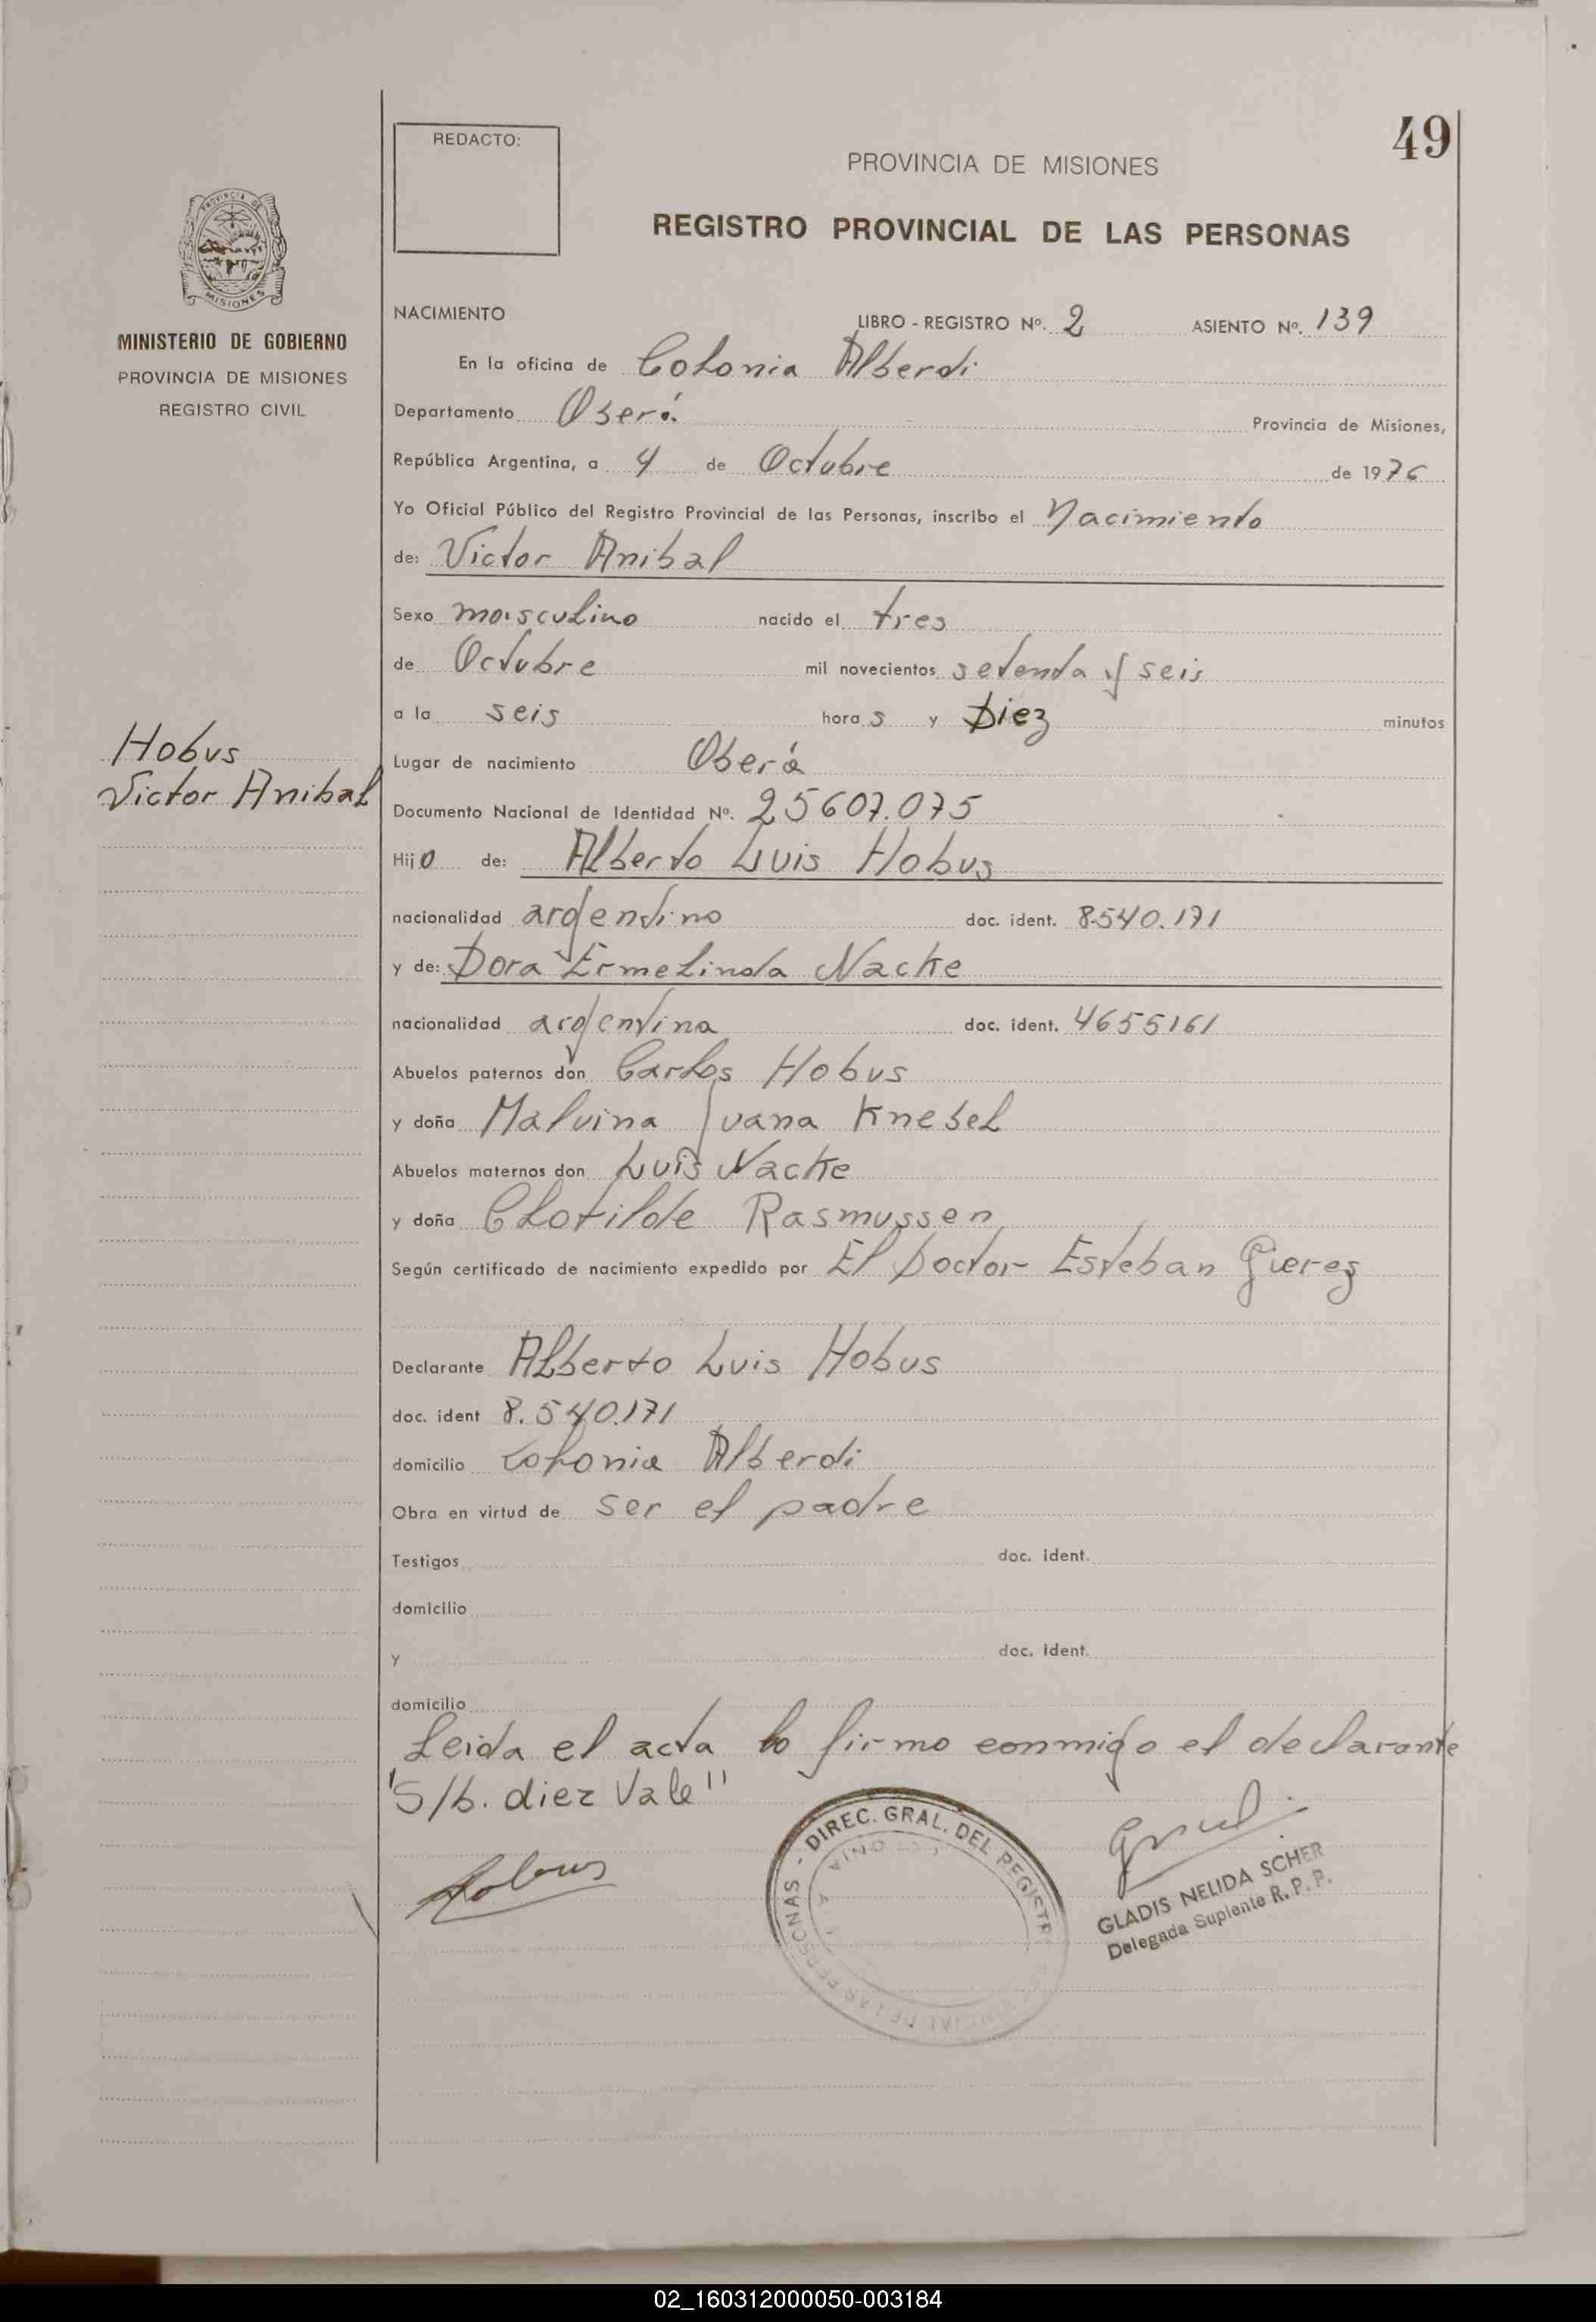 49
REDACTO:
PROVINCIA DE MISIONES
REGISTRO PROVINCIAL DE LAS PERSONAS
PROVINCIA DE
MISIONES
MINISTERIO DE GOBIERNO
PROVINCIA DE MISIONES
REGISTRO CIVIL
Hobus
Victor Anibal
NACIMIENTO LIBRO - REGISTRO Nº. 2 ASIENTO Nº. 139
En la oficina de Colonia Alberdi
Departamento Oberá Provincia de Misiones,
República Argentina, a 4 de Octubre de 1976
Yo Oficial Público del Registro Provincial de las Personas, inscribo el Nacimiento
de: Victor Anibal
Sexo masculino nacido el tres
de Octubre mil novecientos setenta y seis
a la seis hora s y Diez minutos
Lugar de nacimiento Oberá
Documento Nacional de Identidad Nº. 25607.075
Hijo de: Alberto Luis Hobus
nacionalidad argentino doc. ident. 8.540.171
y de: Dora Ermelinda Nacke
nacionalidad argentina doc. ident. 4655161
Abuelos paternos don Carlos Hobus
y doña Malvina Juana Knebel
Abuelos maternos don Luis Nacke
y doña Clotilde Rasmussen
Según certificado de nacimiento expedido por El Doctor Esteban
Declarante Alberto Luis Hobus
doc. ident 8.540.171
domicilio Colonia Alberdi
Obra en virtud de ser el padre
Testigos doc. ident.
domicilio
y doc. Ident.
domicilio
Leida el acta lo firmo conmigo el declarante
"S/b. diez Vale"
DIREC. GRAL. DEL REGISTR
PERSONAS -
GLADIS NELIDA SCHER
Delegada Suplente R. P. P.
02_160312000050-003184